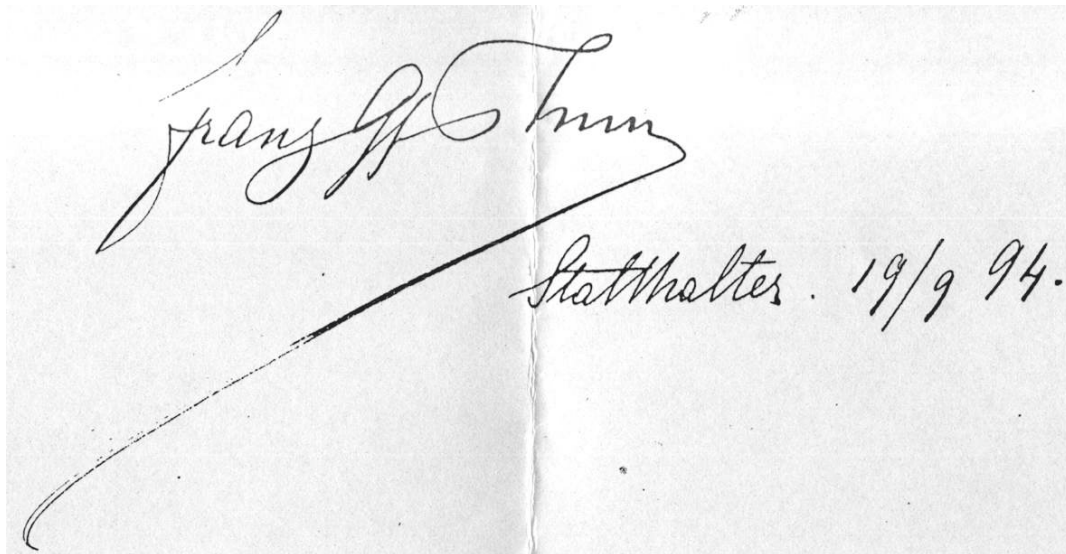 Franz Gf Thun
Statthalter. 19/9 94.